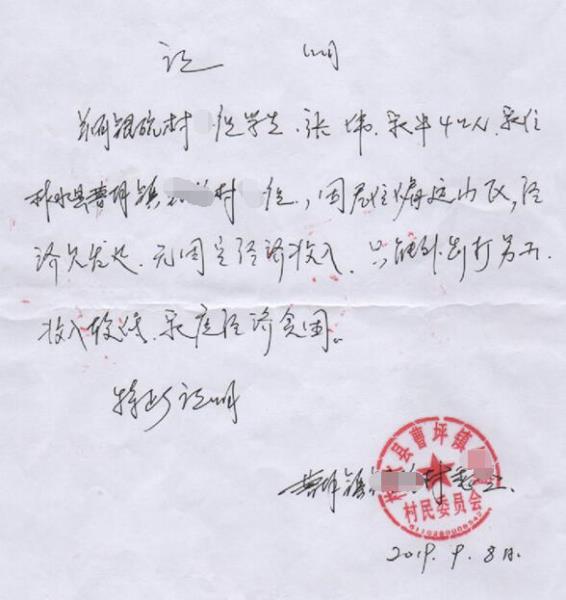 证 明
兹有银碗村 组学生、张 炜、家中4口人、家住
柞水县曹坪镇 村 组,因居住偏远山区,经
济欠发达、无固定经济收入、只能外出打劳工
收入较低、家庭经济贫困。
特此证明
曹坪镇 村委会
柞水县曹坪镇
村民委员会
2019. 9. 8日.